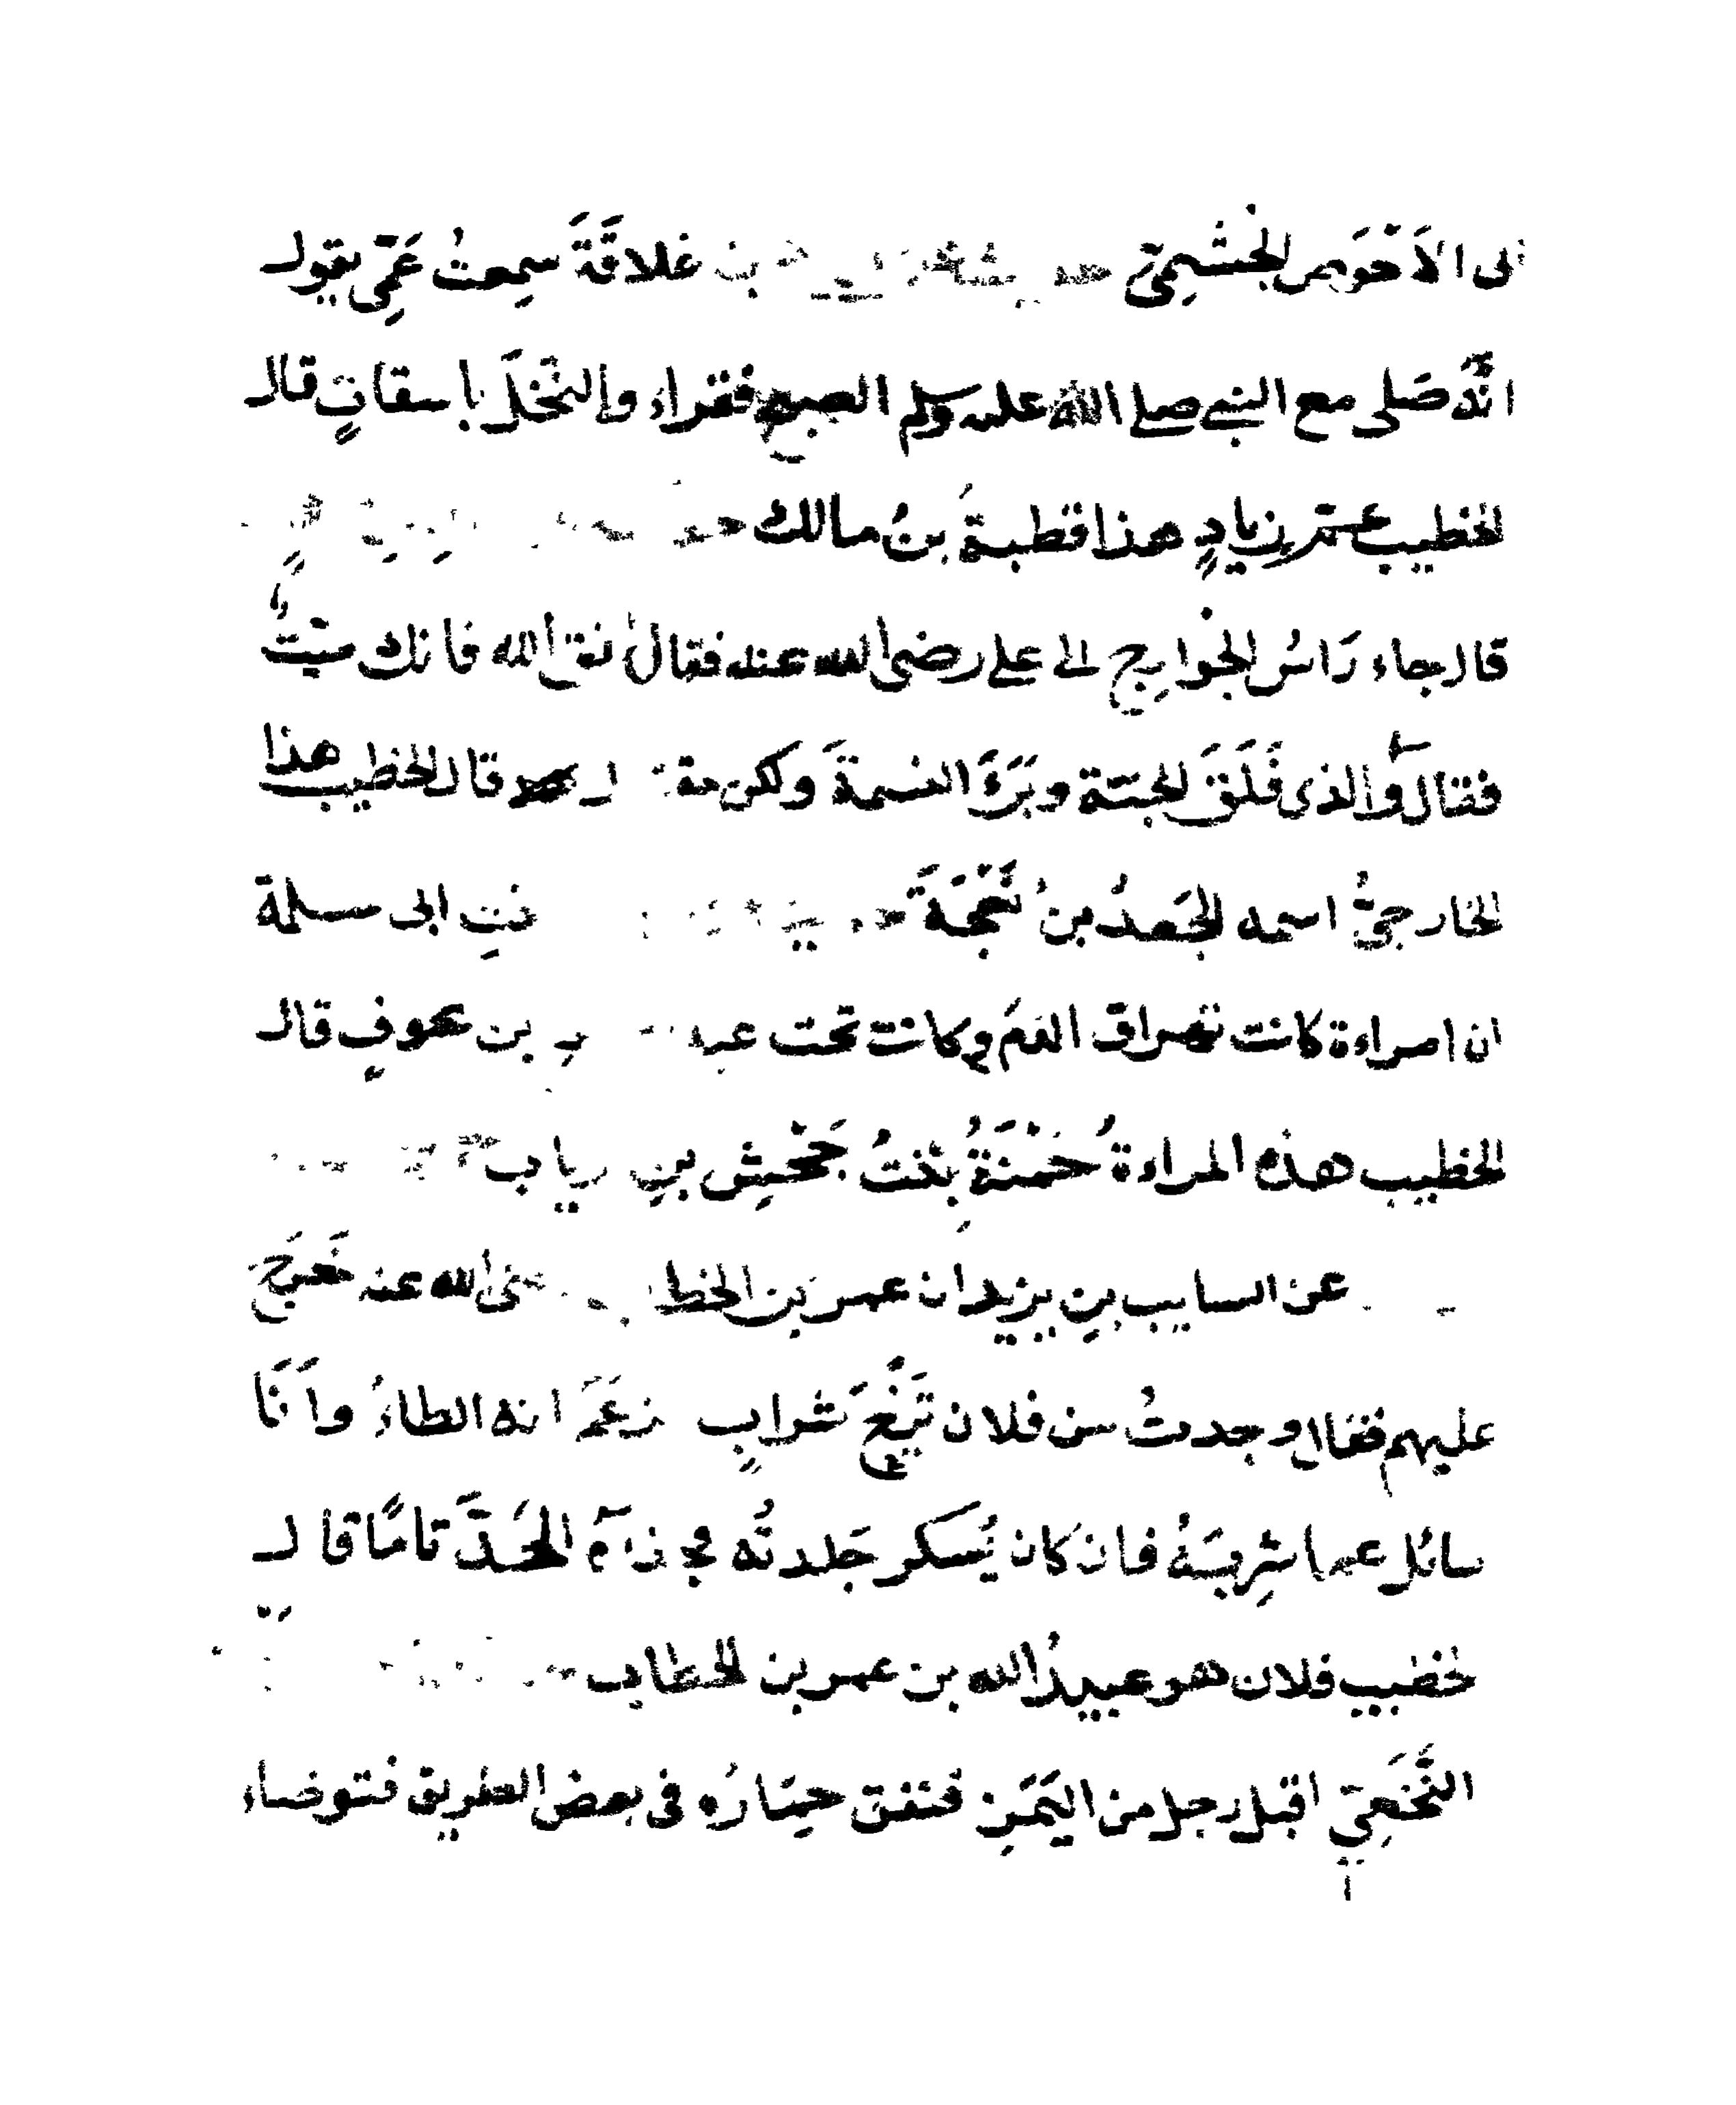 ابى الاَحْوَص الجُشَمِىّ علاقَةَ سَمِعتُ عَمِّى يقول
انّهُ صَلى مع النبى صلى الله عليه وسلم الصبح فقراء والنَّخلَ باسقاتٍ قال
الخطيب عم زيادٍ هذا قطبةُ بنُ مالك
قال جاء رَاسُ الخوارِج الى على رضى الله عنه فقال اتق الله فانك ميّتٌ
فقال لا والذى فَلَقَ الحبّة وبَرَءَ النسمةَ ولكن قال الخطيب هذا
الخارجىُّ اسمه الجَعدُ بنُ نَعْجَةَ بنتِ ابى سلمة
ان امراءة كانت تهراق الدمَ وكانت تحت بن عوفٍ قال
الخطيب هذه المراءةُ حَمْنَةُ بِنْتُ جَحْشِ بنِ رياب
عن السايب بنِ يزيد ان عمر بن الخطاب رضى الله عنه خَرَجَ
عليهم فقال وجدتُ من فلان رِيْحَ شرابٍ زعَمَ انه الطلاءُ وانَا
سائل عما شرِبَهُ فان كان يُسكر جَلدتُه الحَدَّ تامًا قال
الخطيب فلان هو عبيدُ الله بن عمر بن الخطاب
النَّخَعِىّ اقبل رجل من اليَمَنِ فنفق حِمَارُه فى بعض الطريق فتوضاء